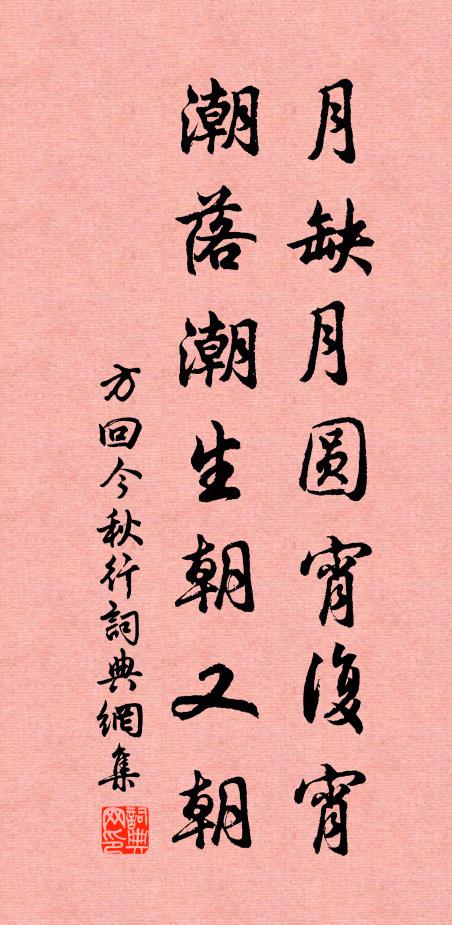 月缺月圆宵復宵
潮落潮生朝又朝
方回今秋行詞典網集
詞典网印